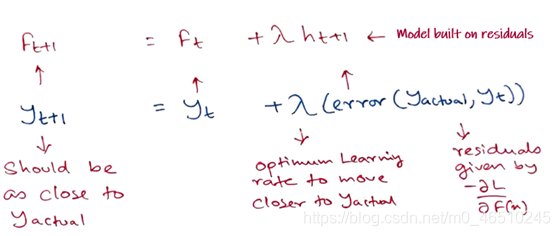 Ft+1 = Ft + λ ht+1 ← Model built on residuals
yt+1 = yt + λ (error (yactual, yt))
Should be
as close to
yactual
optimum Learning
rate to move
closer to yactual
residuals
given by
-∂L
∂F(x)
https://blog.csdn.net/m0_46510245